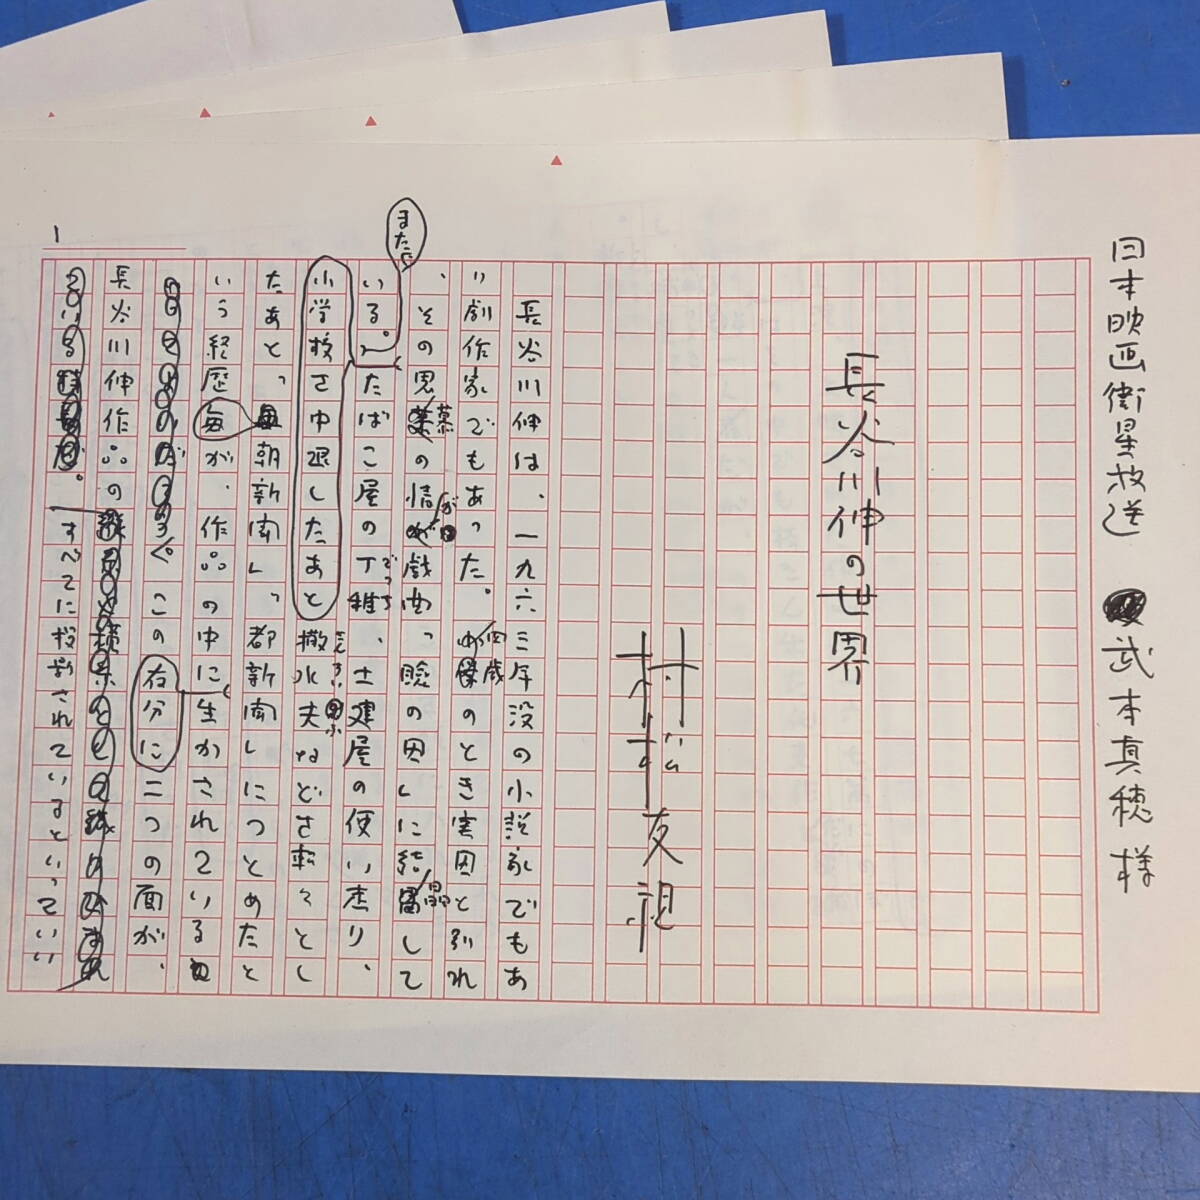 日本映画衛星放送 武本真穂様
長谷川伸の世界
村松友視
長谷川伸は、一九六三年没の小説家でもあ
り劇作家でもあった。四歳のとき実母と別れ
、その思慕の情が戯曲『瞼の母』に結晶して
いる。また、
たばこ屋の丁稚、土建屋の使い走り、
でっち
小学校を中退したあと撒水夫などを転々とし
たあと、『毎朝新聞』『都新聞』につとめたと
いう経歴が、作品の中に存分に生かされている
この二つの面が、
長谷川伸作品の
すべてに投影されているといっていい
1